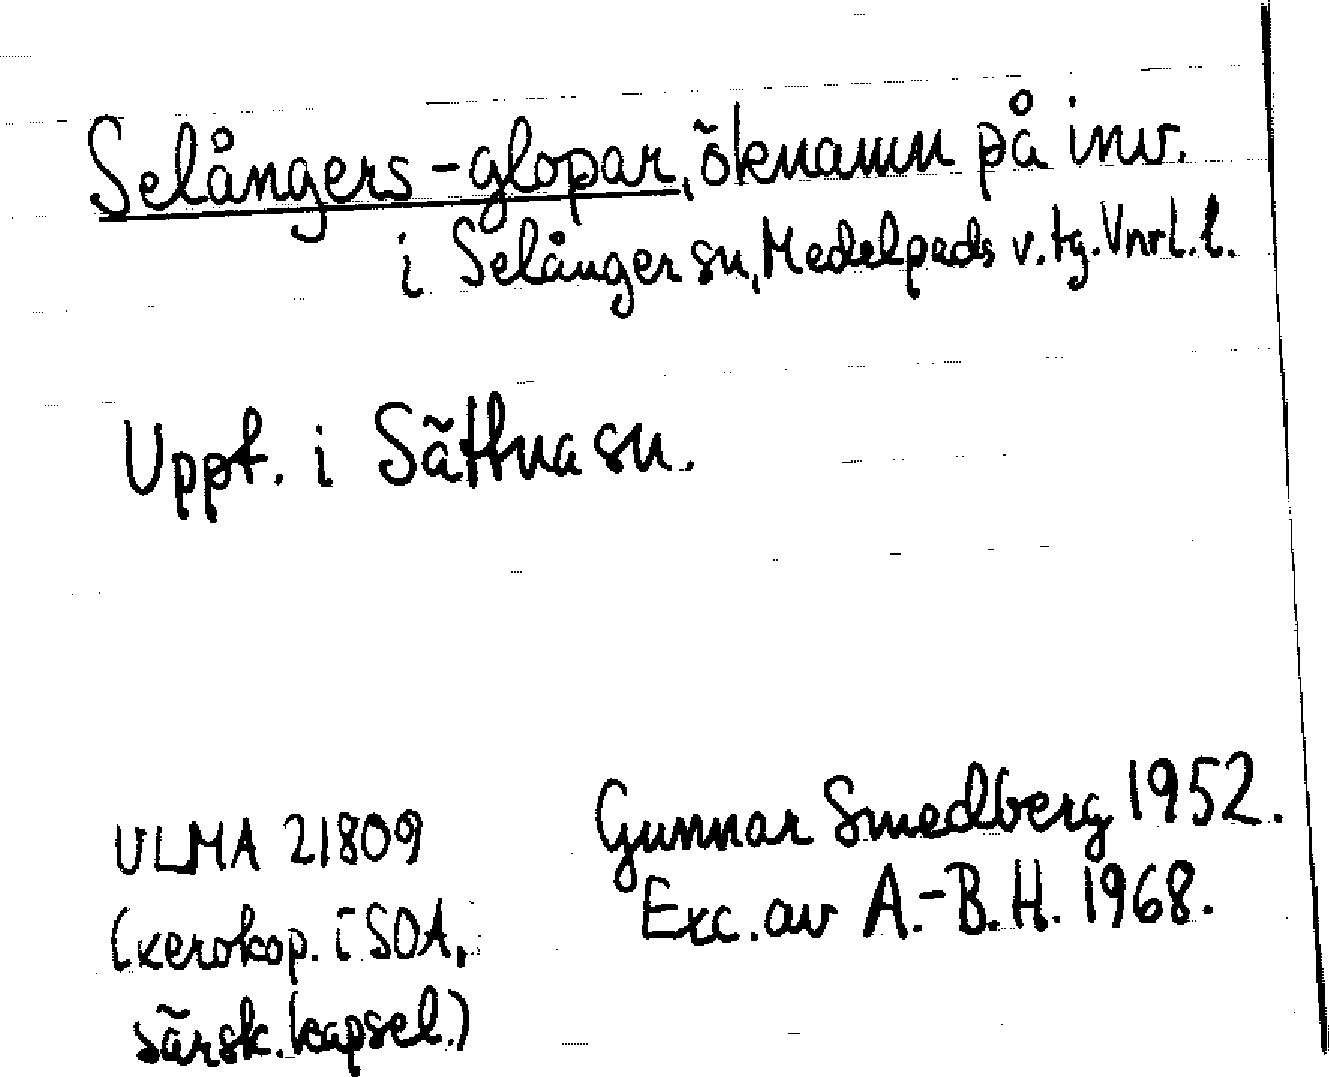 Selångers-glopar, öknamn på inv.
i Selånger sn, Medelpads v. tg. Vnrl. l.
Uppt. i Sättna sn.
ULMA 21809
(xerokop. i SOA,
särsk. kapsel.)
Gunnar Smedberg 1952.
Exc. av A.-B. H. 1968.